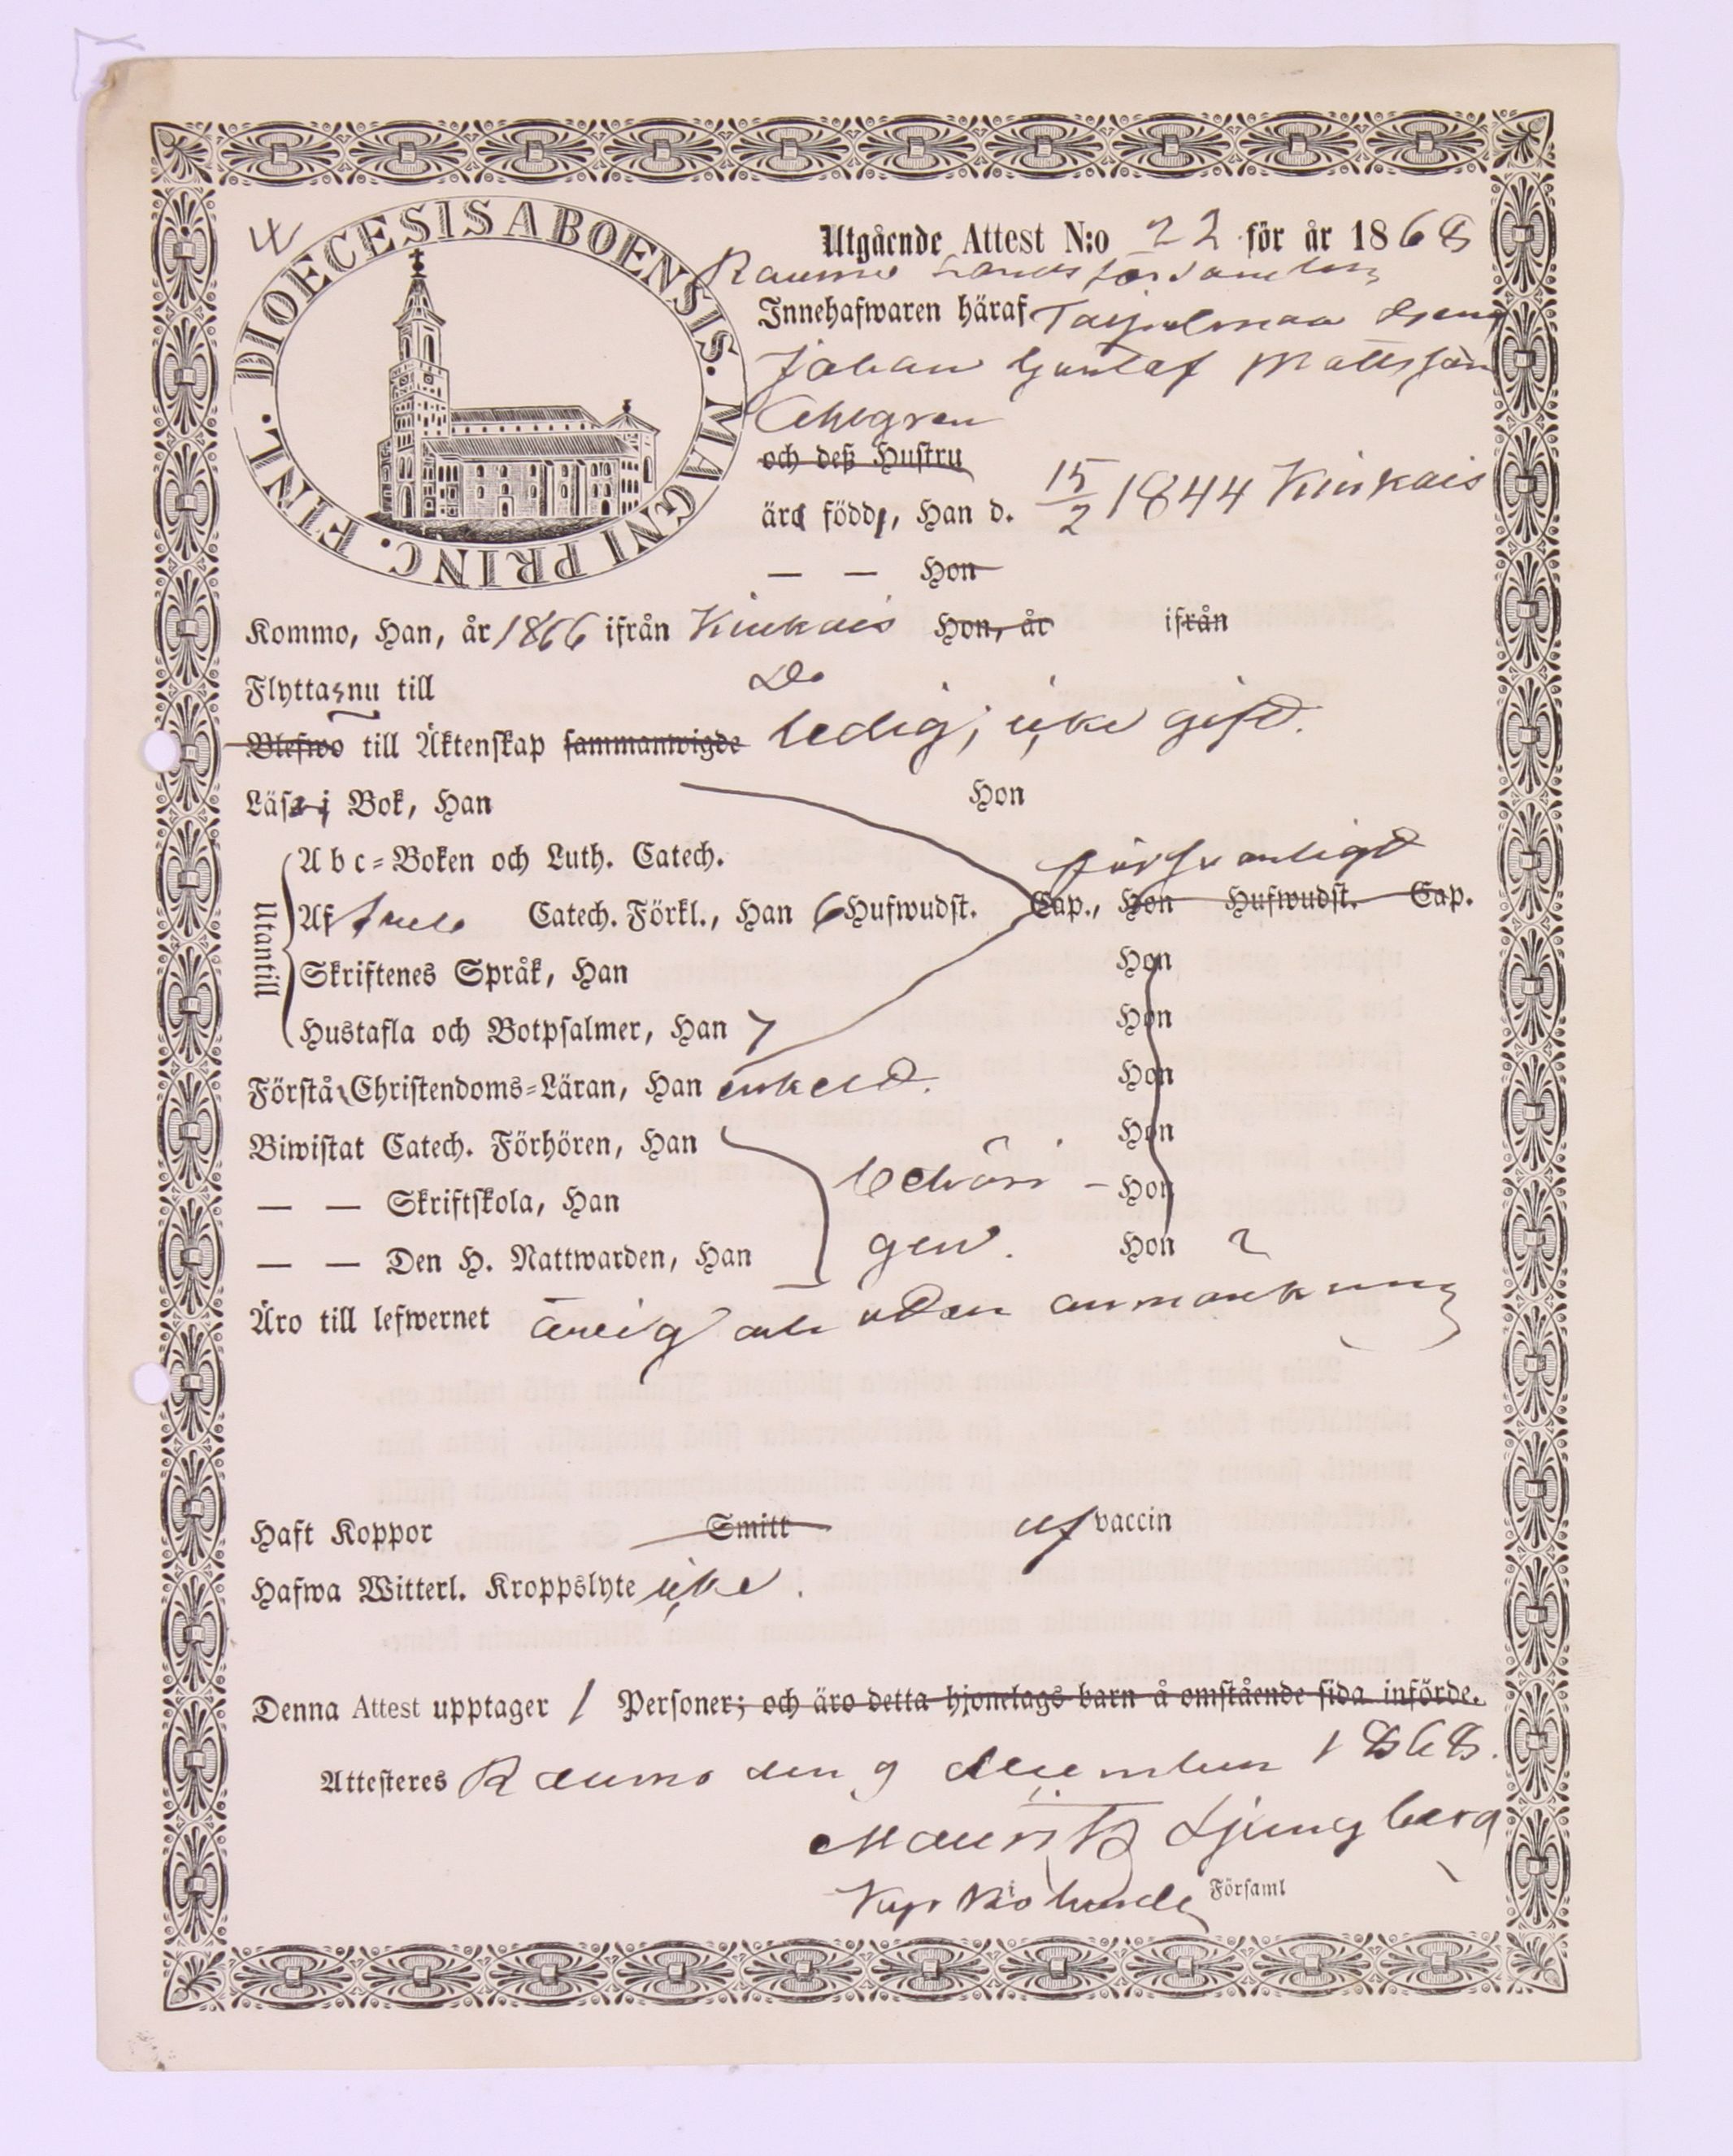 DIOECESIS ABOENSIS. MAGNI PRINC. FINL.
Utgående Attest N:o 22 för år 1868
Raumo Landsförsamling
Innehafwaren häraf dreng
Johan Gustaf Mattsson
Ahlgren
och deß Hustru
äro född, Han d. 15/2 1844 Kiukais
— — Hon
Kommo, Han, år 1866 ifrån Kiukais Hon, år ifrån
Flytta nu till Do
Blefwo till Äktenskap sammanwigde ledig, icke gift.
Läsa i Bok, Han Hon
Utantill
Abc-Boken och Luth. Catech. försvarligt
Af Catech. Förkl., Han 6 Hufwudst. Cap., Hon Hufwudst. Cap.
Skriftenes Språk, Han Hon
Hustafla och Botpsalmer, Han Hon
Förstå Christendoms-Läran, Han enkelt. Hon
Biwistat Catech. Förhören, Han Hon
— — Skriftskola, Han behöri- Hon
— — Den H. Nattwarden, Han gen. Hon
Äro till lefwernet ärlig och utan anmärkning
Haft Koppor Smitt af vaccin
Hafwa Witterl. Kroppslyte icke.
Denna Attest upptager 1 Personer; och äro detta hjonelags barn å omstående sida införde.
Attesteres Raumo den 9 december 1868.
Mauritz Ljungberg
Församl